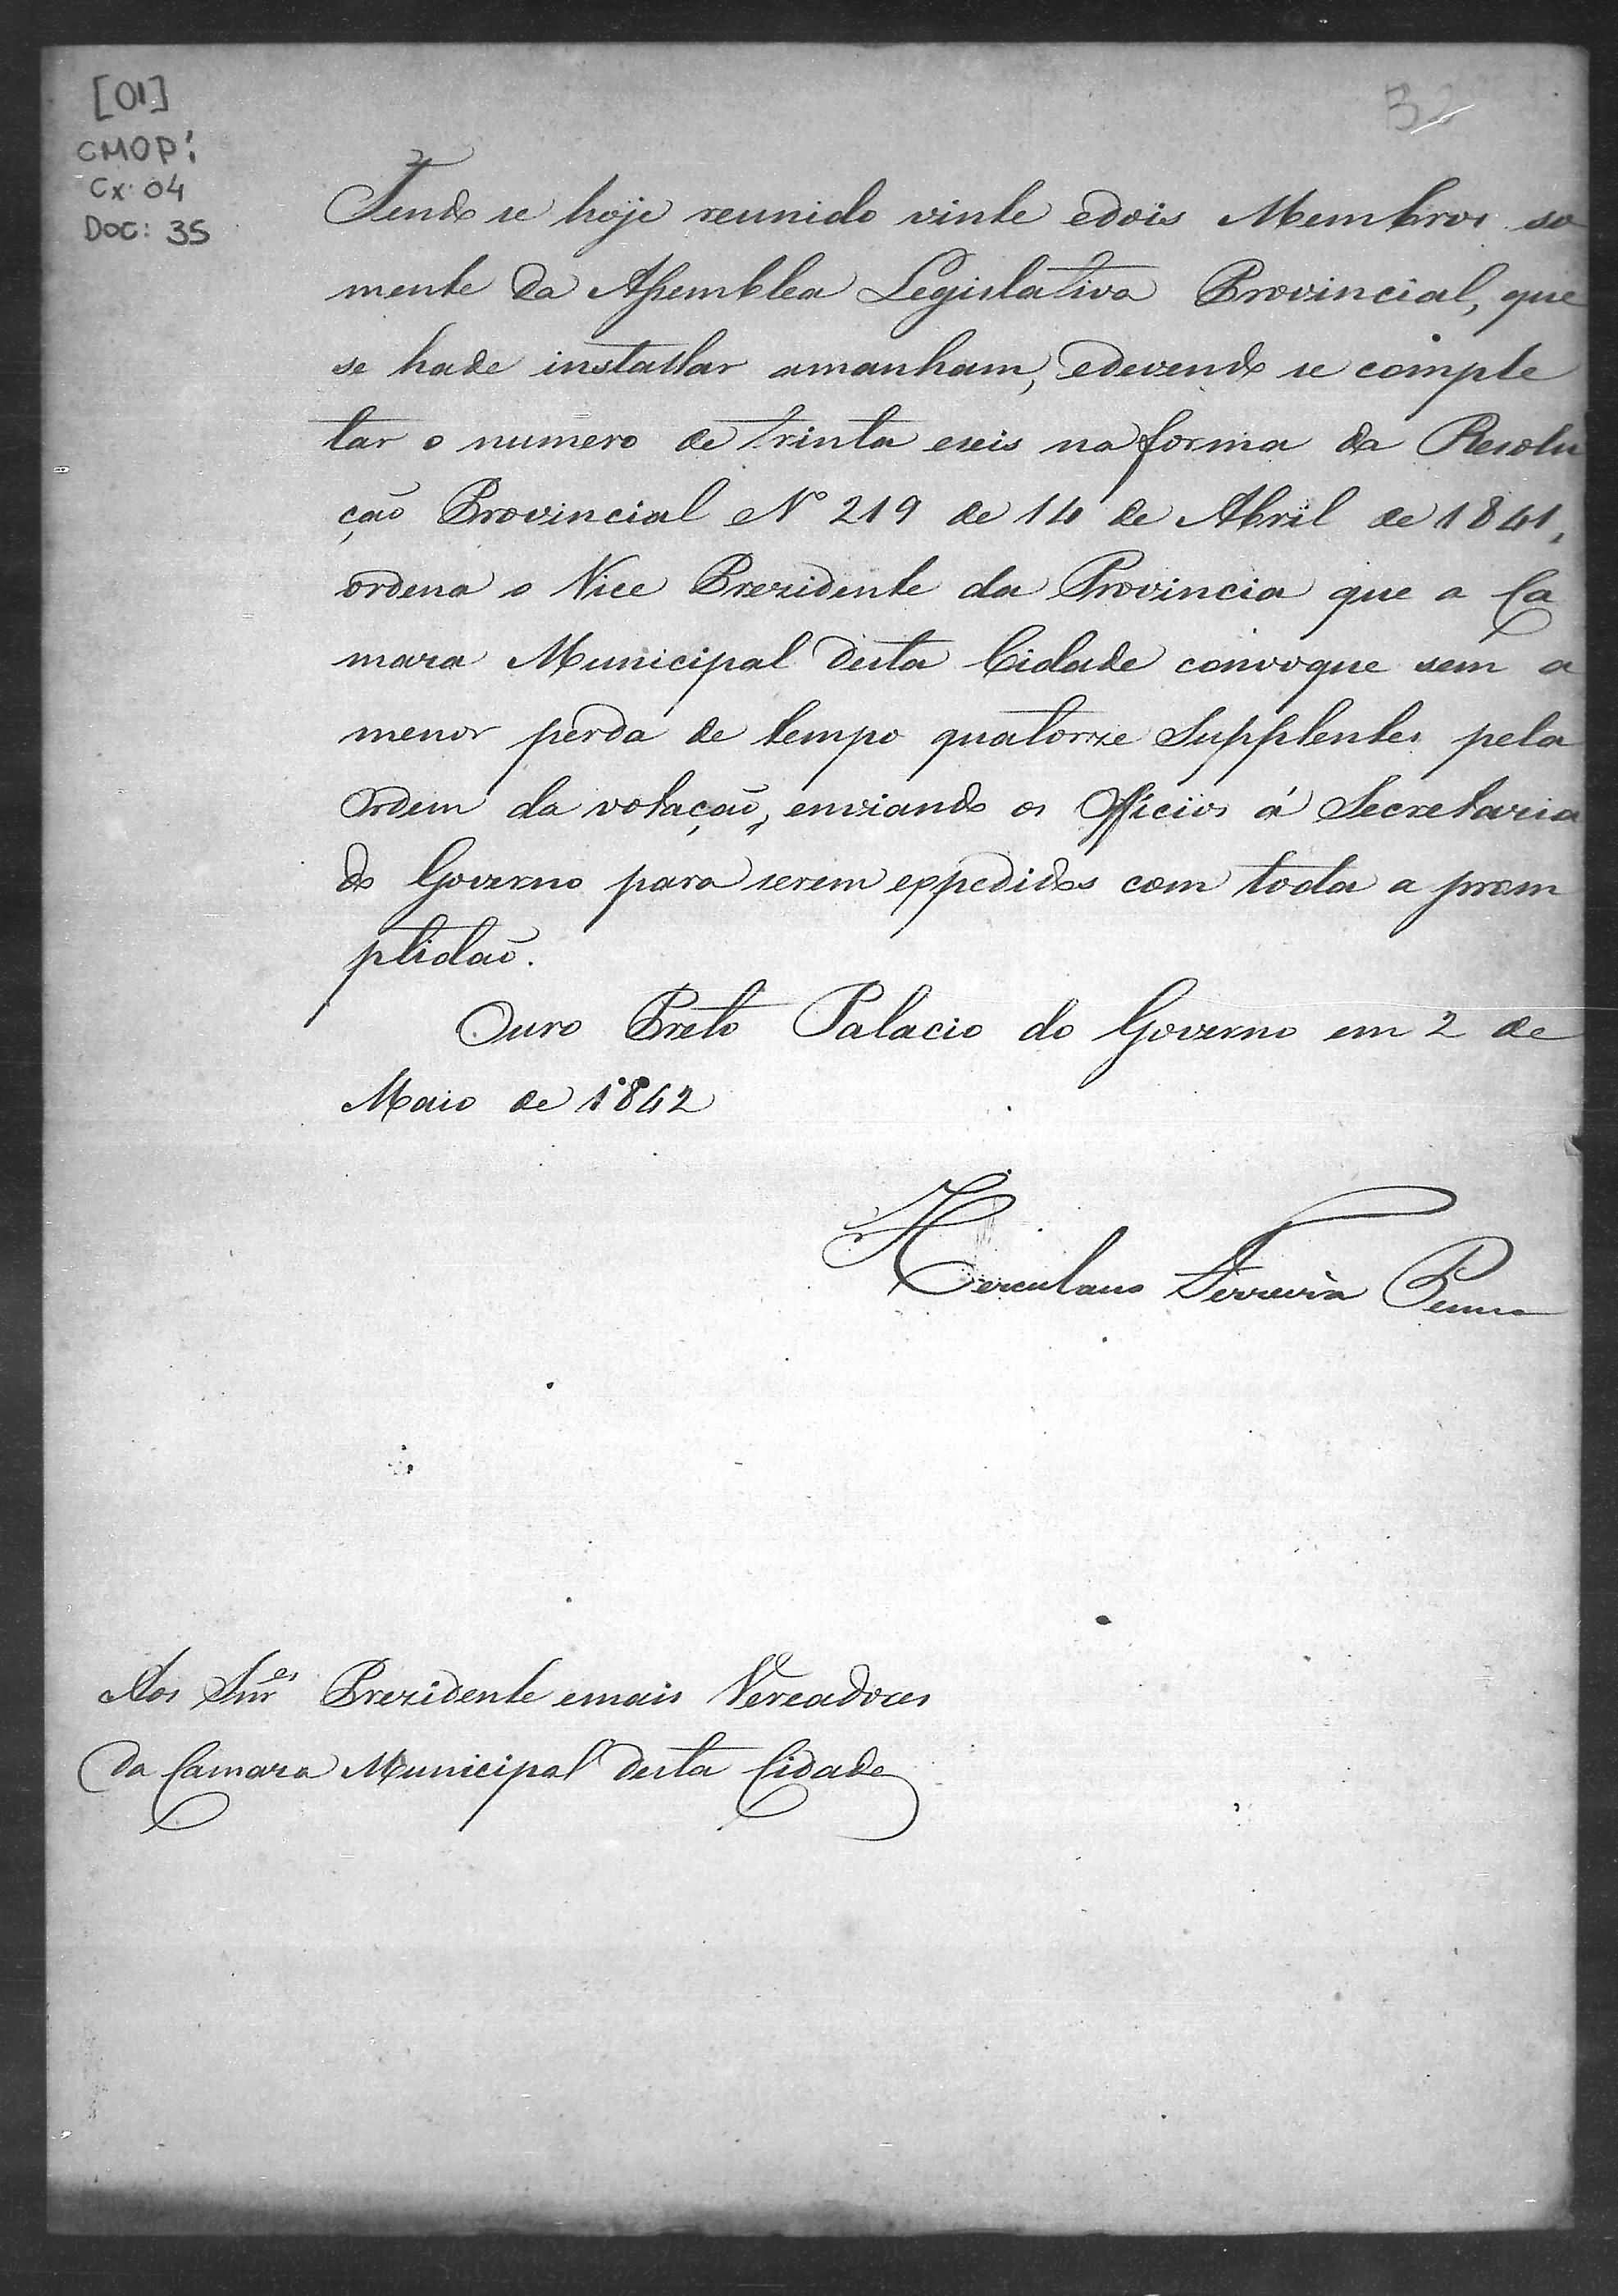 [01]
CMOP:
Cx: 04
Doc: 35
32
Tendo se hoje reunido vinte edois Membros so
mente da Assemblea Legislativa Provincial, que
se hade installar amanham, edevendo se comple
tar o numero de trinta eseis na forma da Resolu
ção Provincial Nº 219 de 14 de Abril de 1841,
ordena o Vice Prezidente da Provincia que a Ca
mara Municipal desta Cidade convoque sem a
menor perda de tempo quatorze Supplentes pela
Ordem da votação, enviando os Officios á Secretaria
do Governo para serem expedidos com toda a prom
ptidão.
Ouro Preto Palacio do Governo em 2 de
Maio de 1842
Herculano Ferreira Penna
Aos Snr.es Prezidente emais Vereadores
da Camara Municipal desta Cidade